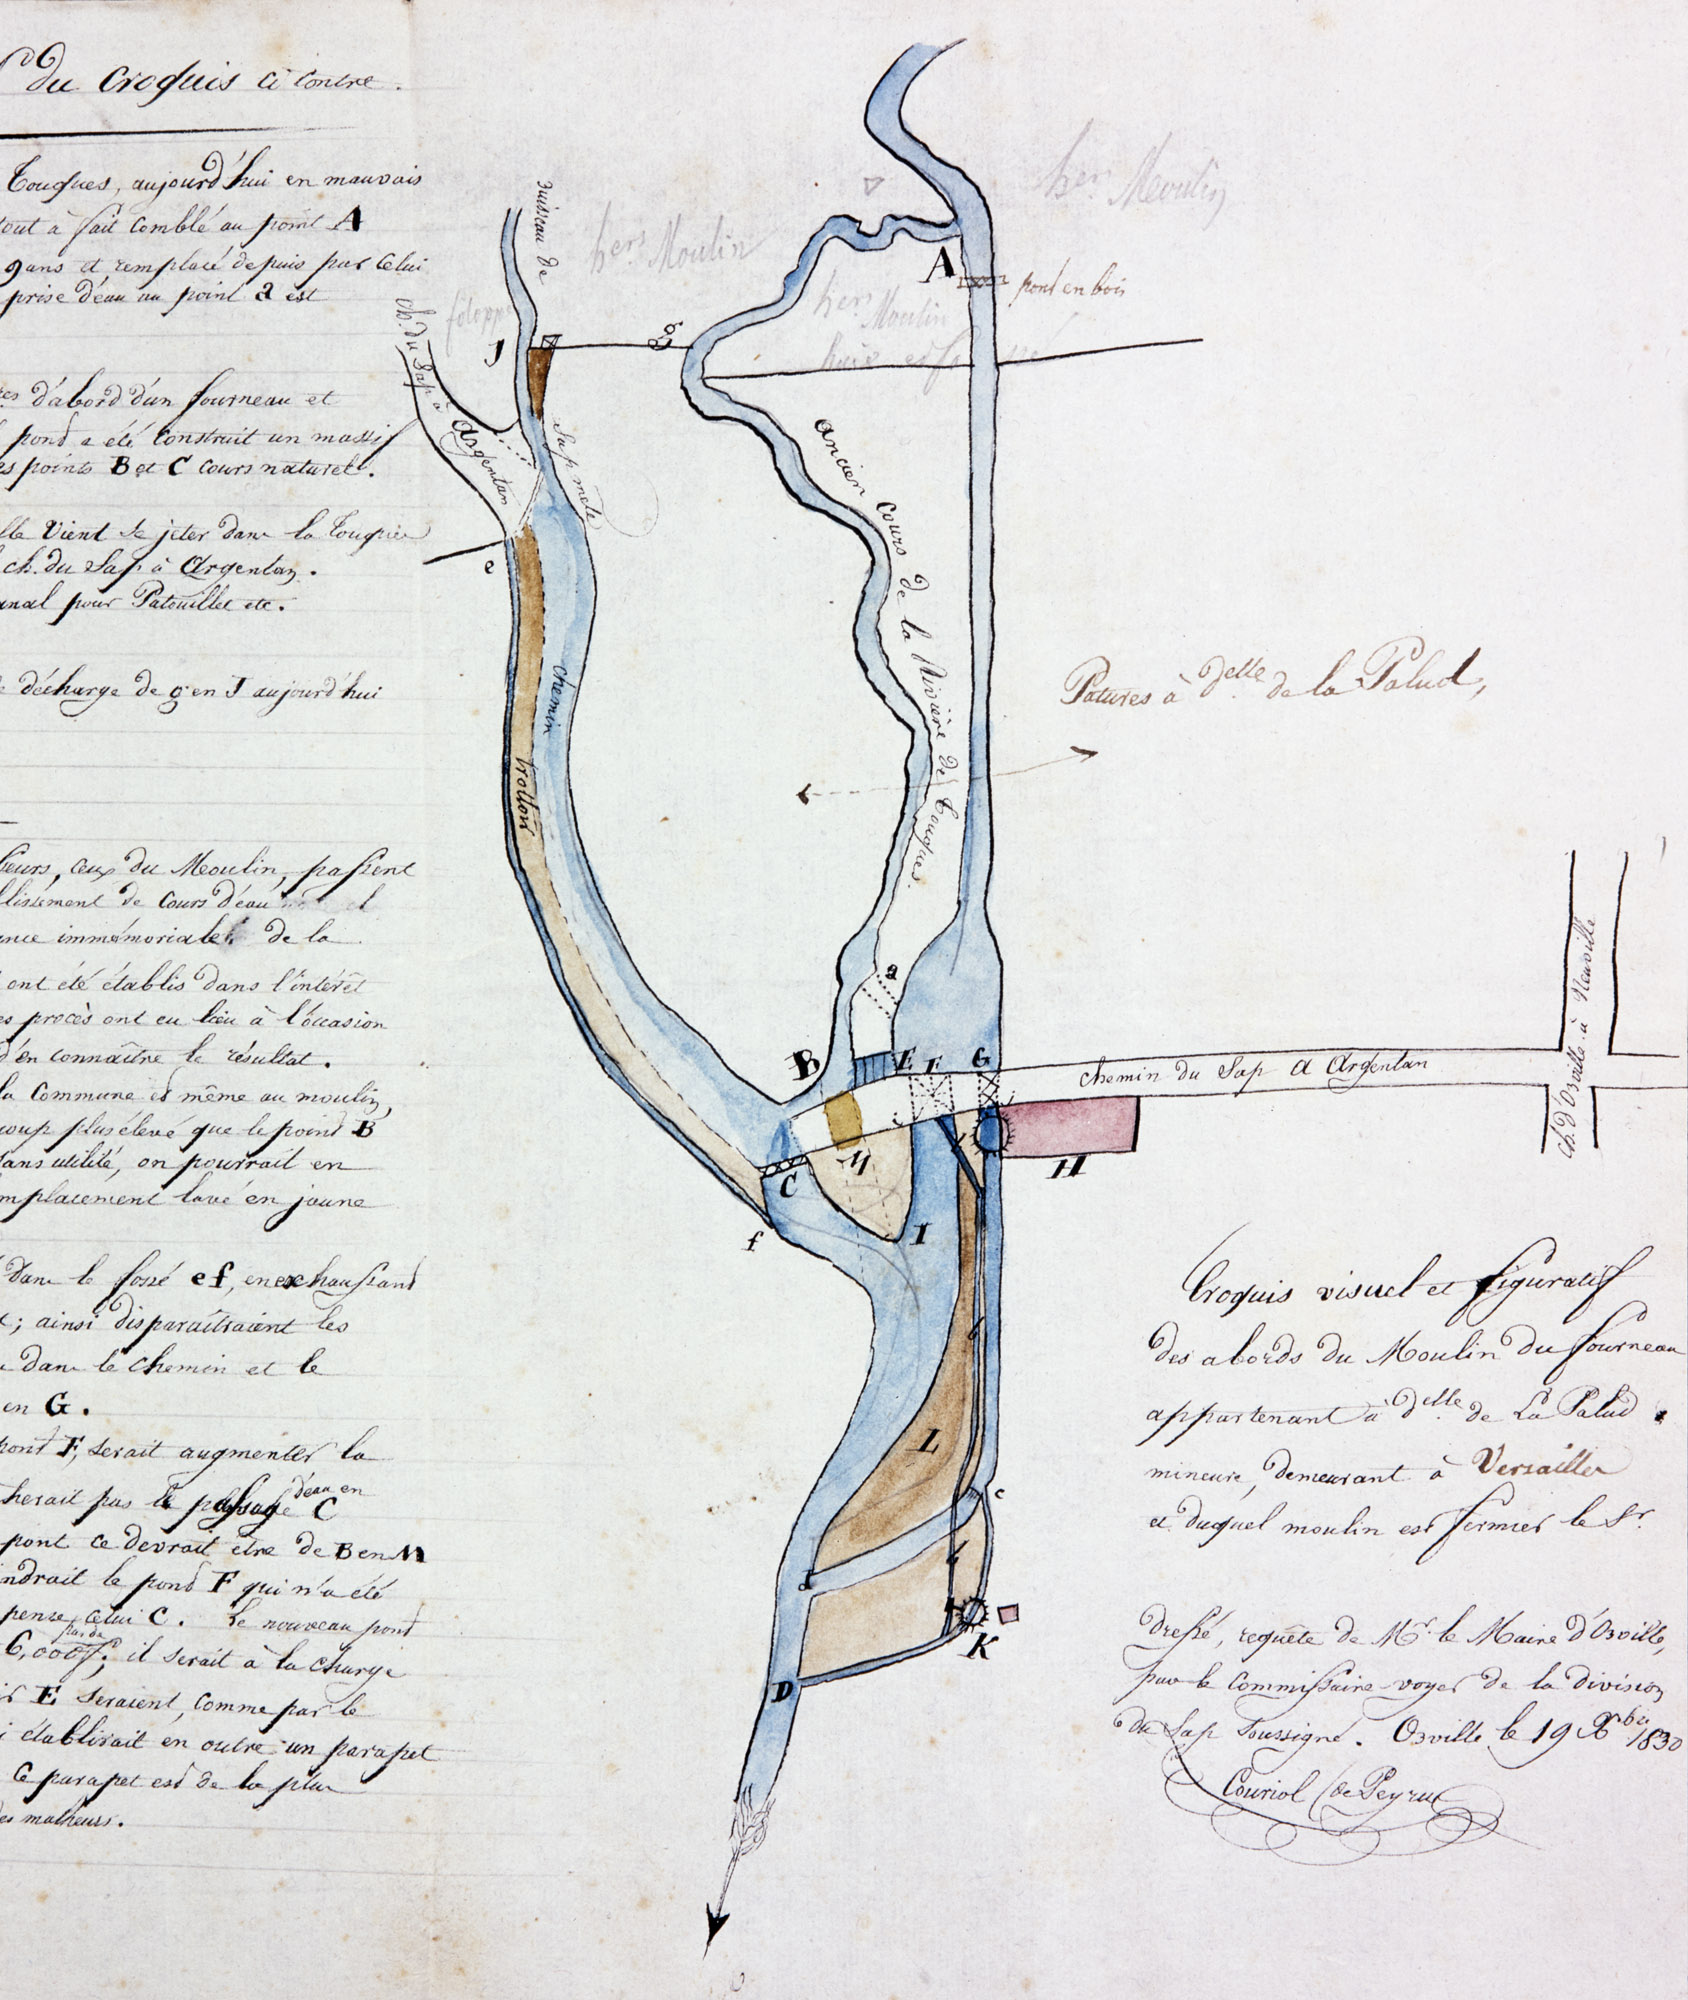 du Croquis ci contre.
Touques, aujourd'hui en mauvais
tout à fait comblé au point A
9 ans et remplacé depuis par celui
prise d'eau au point a est
d'abord d'un fourneau et
pond a été construit un massif
points B et C cours naturel.
vient se jeter dans la Touques
ch. du Sap à Argentan.
canal pour Patouillet etc.
décharge de g en J aujourd'hui
ceux du Moulin, passent
de cours d'eau
immémoriale de la
ont été établis dans l'intérêt
procès ont eu lieu à l'occasion
d'en connaître le résultat.
la Commune et même au moulin,
plus élevé que le point B
sans utilité, on pourrait en
emplacement lavé en jaune
dans le fossé ef, en exhaussant
ainsi disparaîtraient les
dans le chemin et le
en G.
pont F, serait augmenter la
pas le passage d'eau en C
pont ce devrait être de B en M
le pond F qui n'a été
celui C. le nouveau pond
6,000f; il serait à la charge
E seraient, comme par le
établirait en outre un parapet
Ce parapet est de la plus
malheurs.
ruisseau de
Sap mele
hers Moulin
hers Moulin
hers Moulin
A
pont en bois
J
g
ch. du Sap à Argentan
e
ancien Cours de la Rivière de Touques.
chemin
trottoir
Patures à Delle de la Palud,
a
B
E
F
G
chemin du Sap a Argentan
ch. d'Orville à Neuville
M
C
H
f
I
b
L
c
d
b
K
D
Croquis visuel et figuratif
des abords du Moulin du fourneau
appartenant à Delle de La Palud
mineure, demeurant à Versailles
et duquel moulin est fermier le Sr.
Dressé, requête de Mr. le Maire d'Orville,
par le Commissaire-voyer de la division
du Sap Soussigné. Orville le 19 Xbre 1830
Couriol